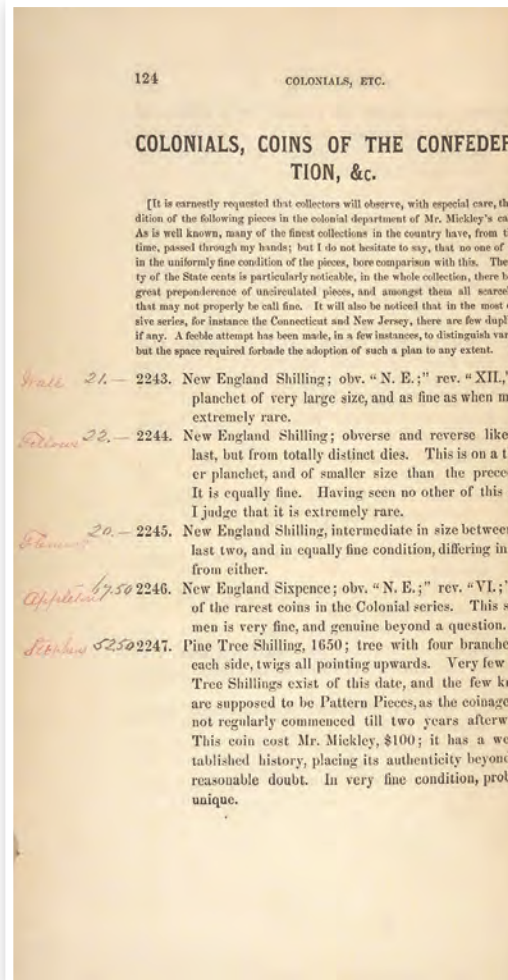 124
COLONIALS, ETC.
COLONIALS, COINS OF THE CONFEDER
TION, &c.
[It is earnestly requested that collectors will observe, with especial care, th
dition of the following pieces in the colonial department of Mr. Mickley's ca
As is well known, many of the finest collections in the country have, from t
time, passed through my hands; but I do not hesitate to say, that no one of
in the uniformly fine condition of the pieces, bore comparison with this. The
ty of the State cents is particularly noticable, in the whole collection, there b
great preponderence of uncirculated pieces, and amongst them all scarcel
that may not properly be call fine. It will also be noticed that in the most
sive series, for instance the Connecticut and New Jersey, there are few dupl
if any. A feeble attempt has been made, in a few instances, to distinguish var
but the space required forbade the adoption of such a plan to any extent.
21.— 2243. New England Shilling; obv. "N. E.;" rev. "XII,"
planchet of very large size, and as fine as when m
extremely rare.
22.— 2244. New England Shilling; obverse and reverse like
last, but from totally distinct dies. This is on a t
er planchet, and of smaller size than the prece
It is equally fine. Having seen no other of this
I judge that it is extremely rare.
20.— 2245. New England Shilling, intermediate in size betwee
last two, and in equally fine condition, differing in
from either.
Appleton 67.50 2246. New England Sixpence; obv. "N. E.;" rev. "VI.;"
of the rarest coins in the Colonial series. This s
men is very fine, and genuine beyond a question.
5250 2247. Pine Tree Shilling, 1650; tree with four branche
each side, twigs all pointing upwards. Very few
Tree Shillings exist of this date, and the few k
are supposed to be Pattern Pieces, as the coinage
not regularly commenced till two years afterw
This coin cost Mr. Mickley, $100; it has a we
tablished history, placing its authenticity beyond
reasonable doubt. In very fine condition, prob
unique.